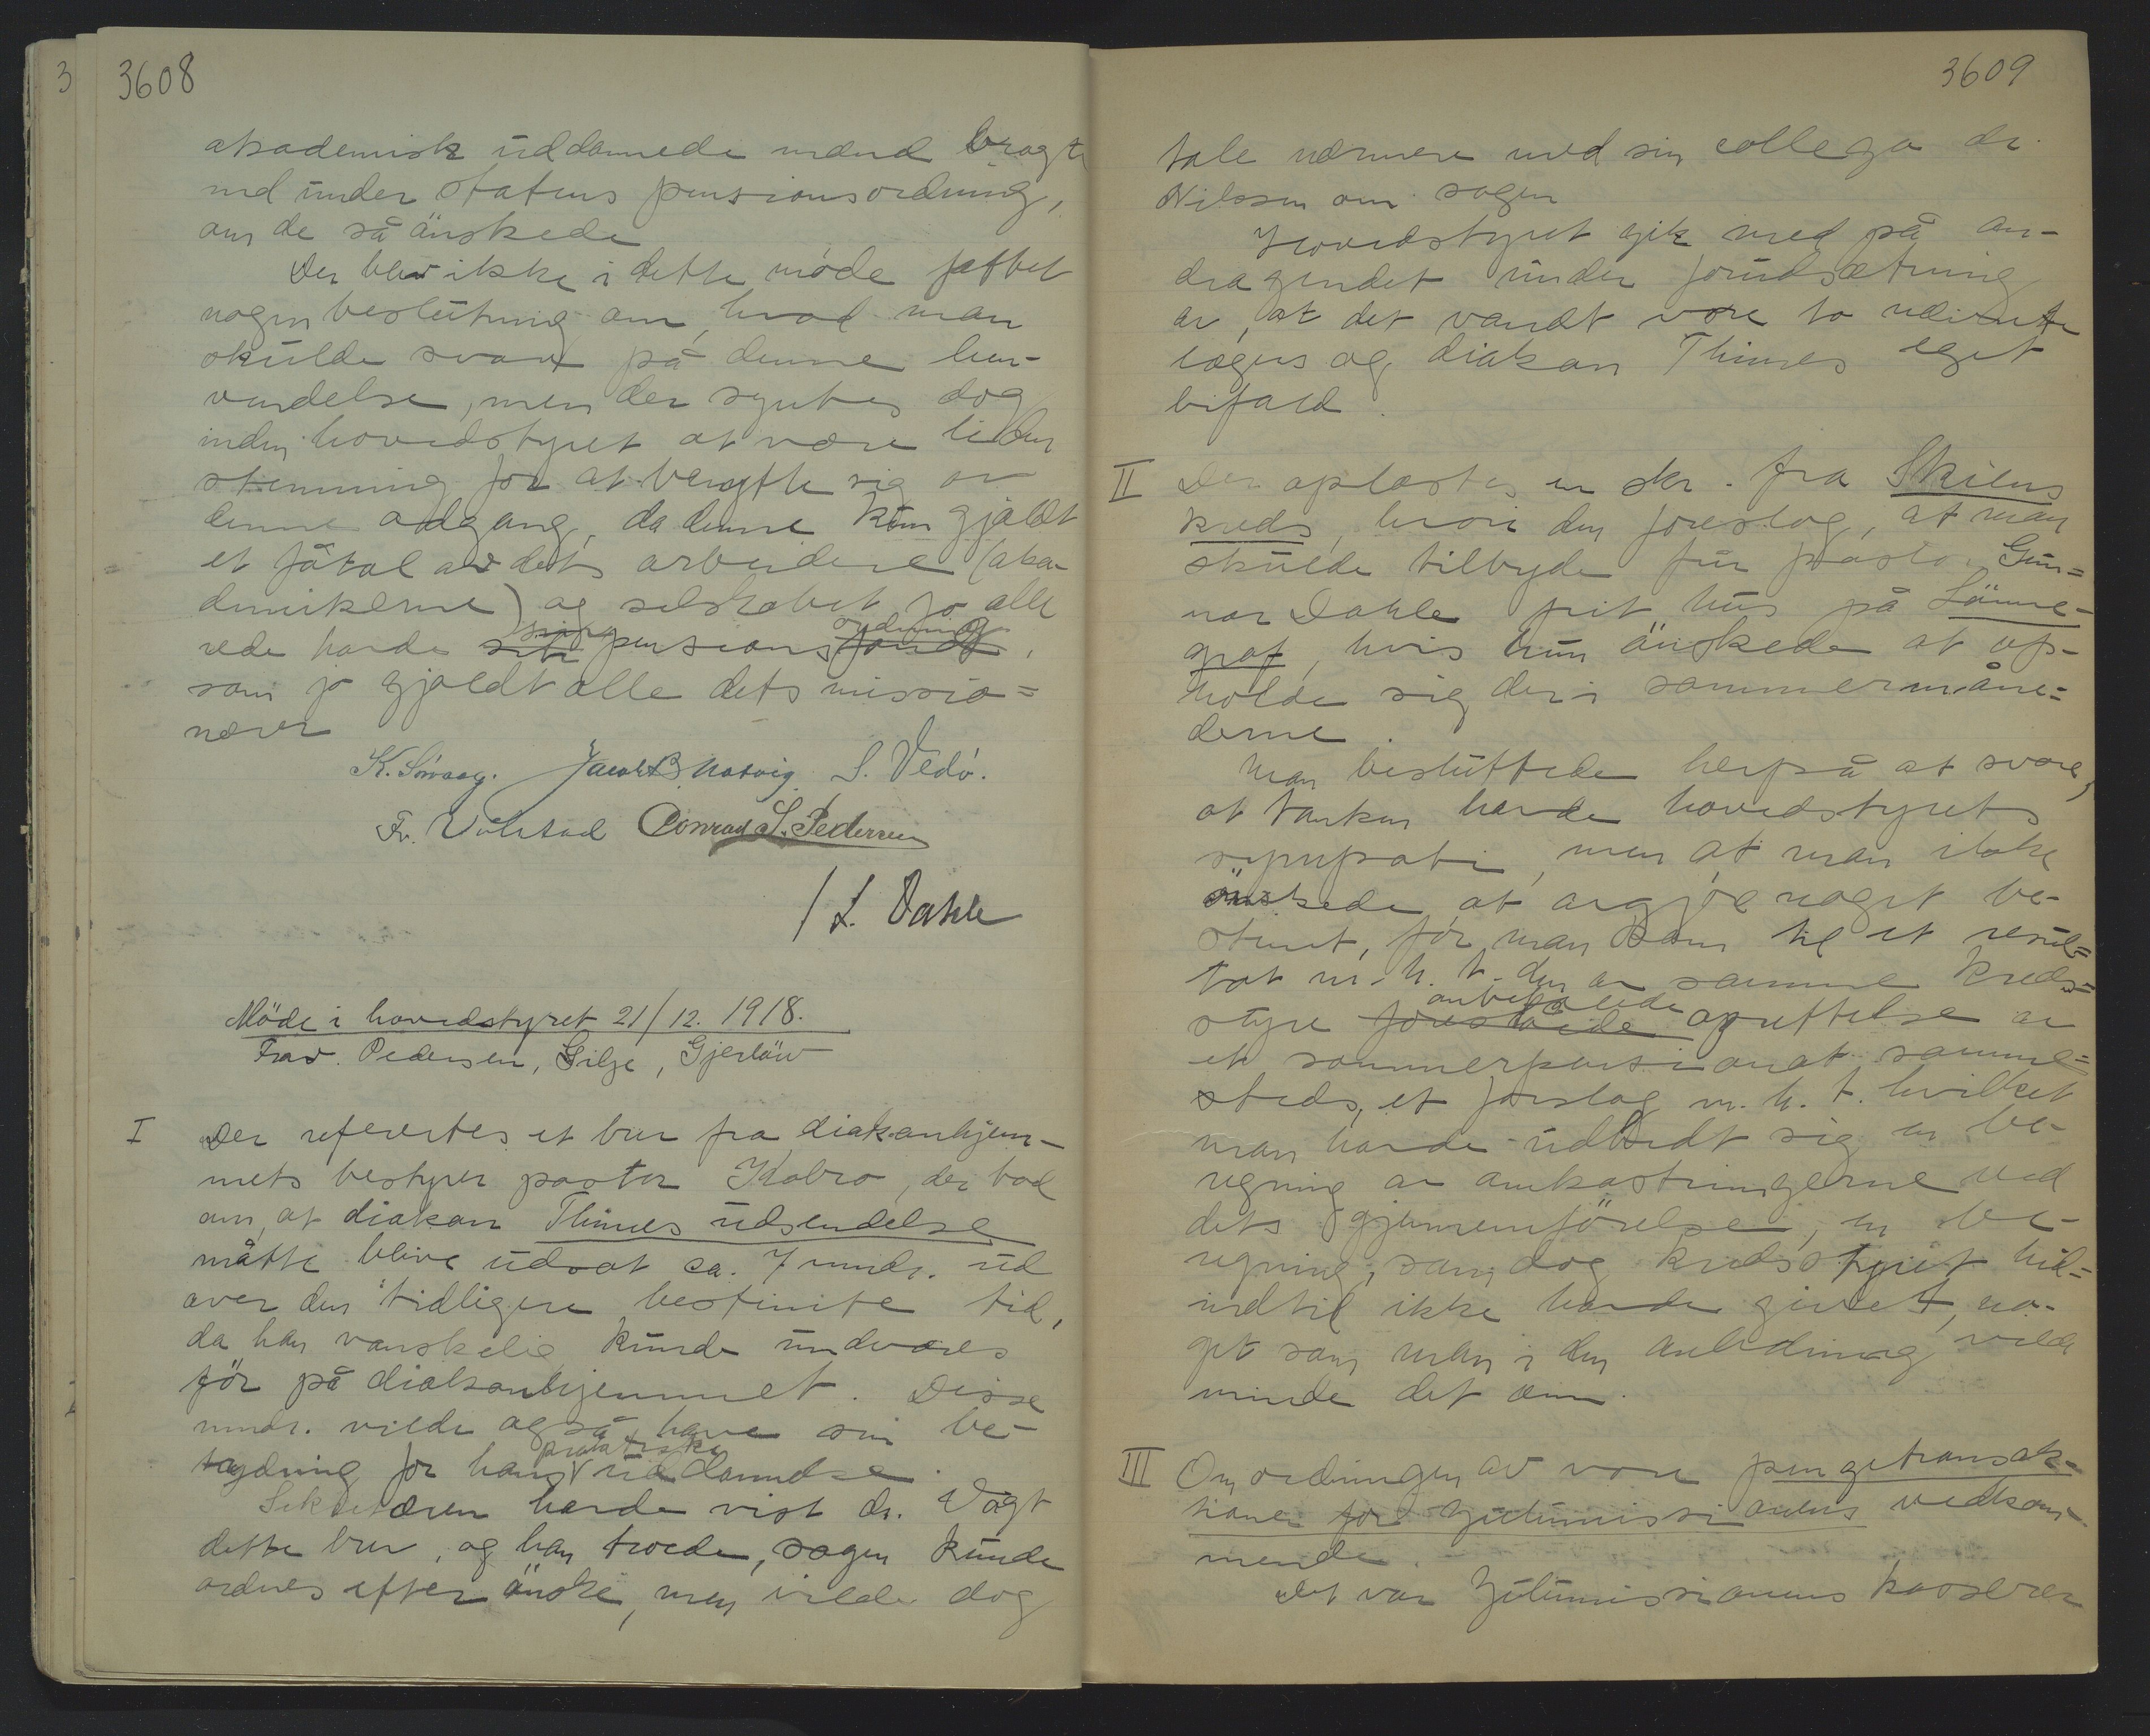 3
3608
akademisk uddannede mænd bragte
ind under statens pensionsordning,
om de så önskede
Der blev ikke i dette möde fattet
nogen beslutning om, hvad man
skulde svare på denne hen-
vendelse, men der syntes dog
inden hovedstyret at være liden
stemning for at benytte sig av
denne adgang, da denne kun gjaldt
et fåtal av dets arbeidere (aka-
demikerne) og selskabet jo alle
rede havde sin pensionsordning,
som jo gjaldt alle dets missio=
nærer
K. Sövaag. Jacob B. Natvig. S. Vedö.
Fr. Vølstad Conrad S. Pedersen
/ L. Dahle
Möde i hovedstyret 21/12. 1918.
Frav. Pedersen, Gilje, Gjerlöw
I Der refereertes et brev fra diakonhjem-
mets bestyrer pastor Kobro, der bad
om, at diakon Thimes udsendelse
måtte blive udsat ca. 7 mndr. ud
over den tidligere bestimte tid,
da han vanskelig kunde undværes
för på diakonhjemmet. Disse
mndr. vilde også have sin be-
tydning for hans praktiske uddannelse.
Sekretæren havde vist dr. Vogt
dette brev, og han troede, sagen kunde
ordnes efter önske, men vilde dog
3609
tale nærmere med sin collega dr.
Nilssen om sagen
Hovedstyret gik med på an-
dragendet under forudsætning
av, at det vandt vore to nævnte
lægers og diakon Thimes eget
bifald.
II Der oplæstes en skr. fra Skiens
kreds, hvori den foreslog, at man
skulde tilbyde fru pastor Gun=
nar Dahle frit hus på Lönne-
graf, hvis hun önskede at op-
holde sig der i sommermåne=
derne.
Man besluttede herpå at svare,
at tanken havde hovedstyrets
sympati, men at man ikke
önskede at avgjöre noget be-
stemt, för man kom til et resul=
tat m. h. t. den av samme kreds=
styre anbefalede oprettelse av
et sommerpensionat samme=
steds, et forslag m. h. t. hvilket
man havde udbedt sig en be-
regning av omkostningerne ved
dets gjennemförelse, en be-
regning, som dog kredsstyret hid=
indtil ikke havde givet, no-
get som man i den anledning vilde
minde det om.
III Om ordningen av vore pengetransak-
tioner for Zulumissionens vedkom-
mende.
Det var Zulumissionens kasserer